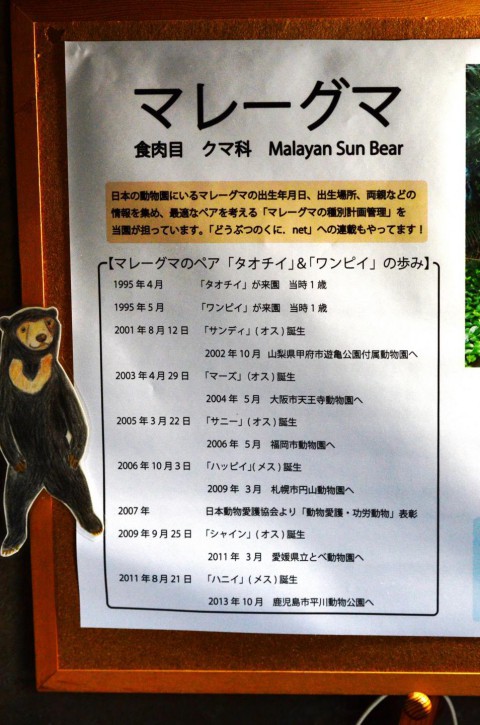 マレーグマ
食肉目　クマ科　Malayan Sun Bear
日本の動物園にいるマレーグマの出生年月日、出生場所、両親などの
情報を集め、最適なペアを考える「マレーグマの種別計画管理」を
当園が担っています。「どうぶつのくに．net」への連載もやってます！
【マレーグマのペア「タオチイ」&「ワンピイ」の歩み】
1995年4月　「タオチイ」が来園　当時1歳
1995年5月　「ワンピイ」が来園　当時1歳
2001年8月12日　「サンディ」(オス)誕生
2002年10月　山梨県甲府市遊亀公園付属動物園へ
2003年4月29日　「マーズ」(オス)誕生
2004年 5月　大阪市天王寺動物園へ
2005年3月22日　「サニー」(オス)誕生
2006年 5月　福岡市動物園へ
2006年10月3日　「ハッピイ」(メス)誕生
2009年 3月　札幌市円山動物園へ
2007年　日本動物愛護協会より「動物愛護・功労動物」表彰
2009年9月25日　「シャイン」(オス)誕生
2011年 3月　愛媛県立とべ動物園へ
2011年8月21日　「ハニイ」(メス)誕生
2013年10月　鹿児島市平川動物公園へ